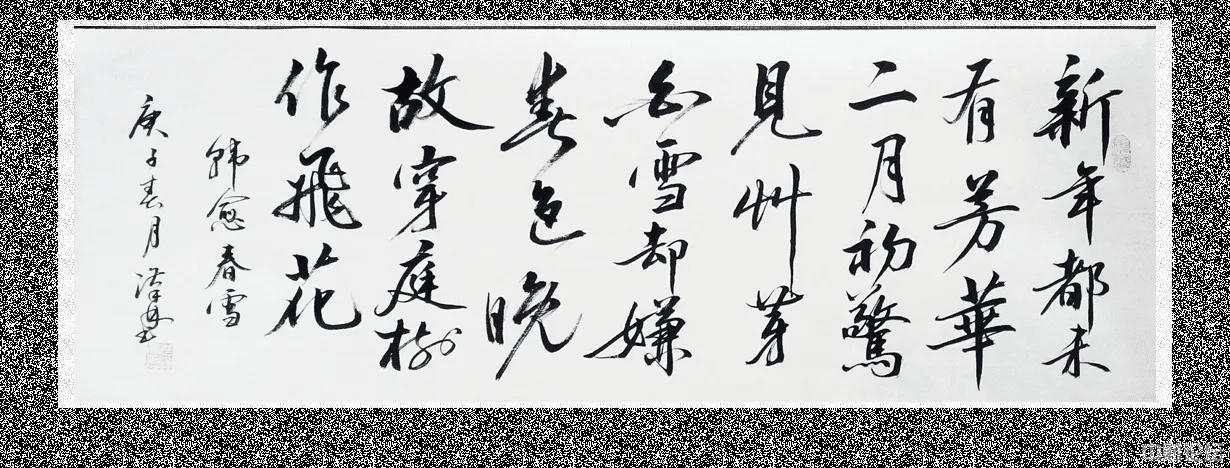 新年都未
有芳華
二月初驚
見艸芽
白雪却嫌
春色晚
故穿庭樹
作飛花
韩愈春雪
庚子春月